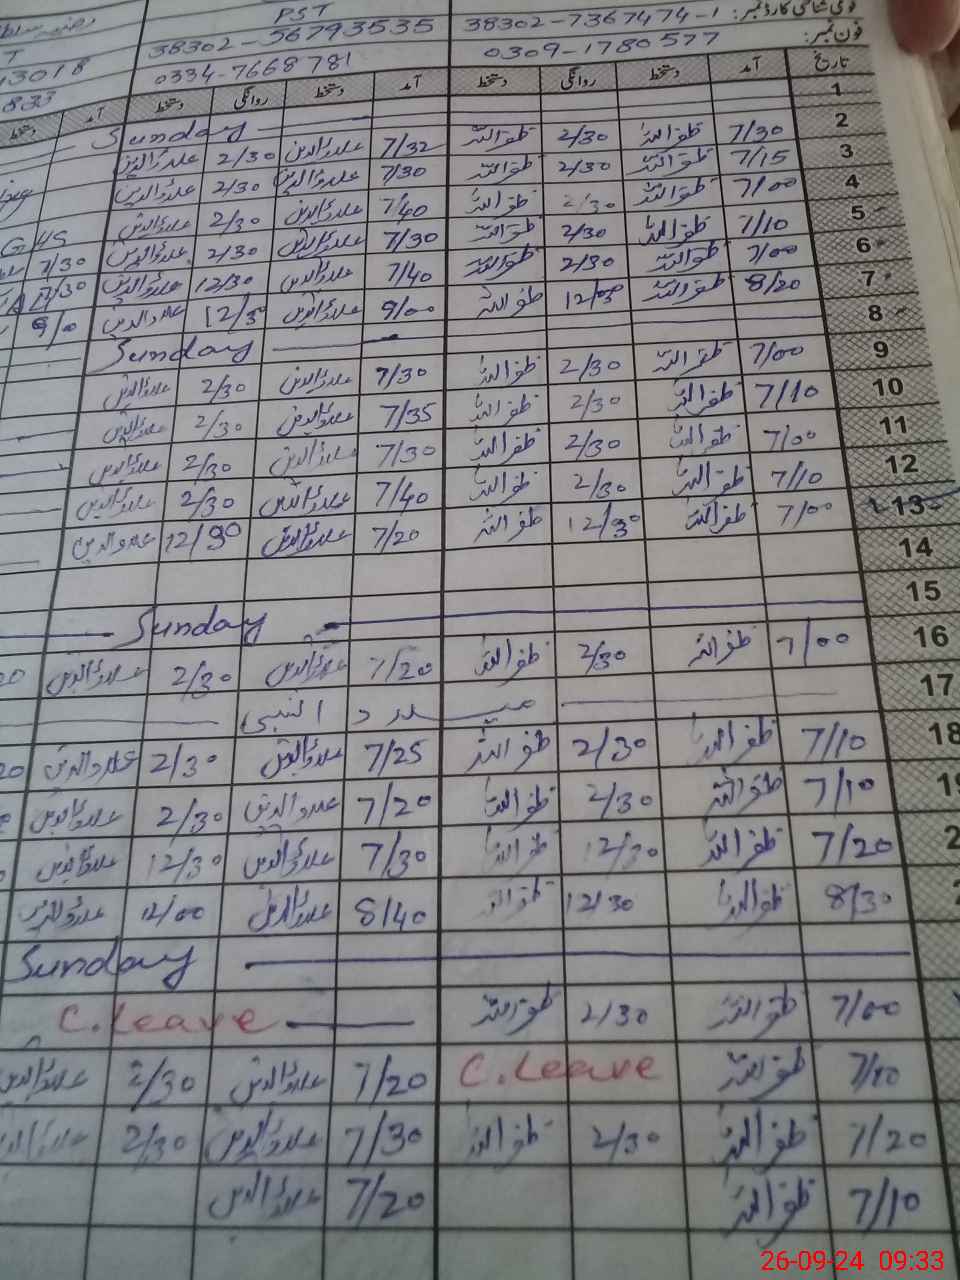 قومی شناختی کارڈ نمبر: 38302-7367474-1 38302-56793535 PST
فون نمبر: 0309-1780577 0334-7668781 T
13018
833
تاریخ آمد دستخط روانگی دستخط آمد دستخط روانگی دستخط آمد دستخط
1 Sunday
2 7/30 ظفراللہ 2/30 ظفراللہ 7/32 علاؤالدین 2/30 علاؤالدین
3 7/15 ظفراللہ 2/30 ظفراللہ 7/30 علاؤالدین 2/30 علاؤالدین
4 7/00 ظفراللہ 2/30 ظفراللہ 7/40 علاؤالدین 2/30 علاؤالدین
5 7/10 ظفراللہ 2/30 ظفراللہ 7/30 علاؤالدین 2/30 علاؤالدین 7/30
6 7/00 ظفراللہ 2/30 ظفراللہ 7/40 علاؤالدین 12/30 علاؤالدین 7/30
7 8/20 ظفراللہ ظفراللہ 9/00 علاؤالدین 12/30 علاؤالدین 9/00
8 Sunday
9 7/00 ظفراللہ 2/30 ظفراللہ 7/30 علاؤالدین 2/30 علاؤالدین
10 7/10 ظفراللہ 2/30 ظفراللہ 7/35 علاؤالدین 2/30 علاؤالدین
11 7/00 ظفراللہ 2/30 ظفراللہ 7/30 علاؤالدین 2/30 علاؤالدین
12 7/10 ظفراللہ 2/30 ظفراللہ 7/40 علاؤالدین 2/30 علاؤالدین
13 7/00 ظفراللہ 12/30 ظفراللہ 7/20 علاؤالدین 12/30 علاؤالدین
14
15 Sunday
16 7/00 ظفراللہ 2/30 ظفراللہ 7/20 علاؤالدین 2/30 علاؤالدین
17 میلاد النبی
18 7/10 ظفراللہ 2/30 ظفراللہ 7/25 علاؤالدین 2/30 علاؤالدین
7/10 ظفراللہ 2/30 ظفراللہ 7/20 علاؤالدین 2/30 علاؤالدین
7/20 ظفراللہ 12/30 ظفراللہ 7/30 علاؤالدین 12/30 علاؤالدین
8/30 ظفراللہ 12/30 ظفراللہ 8/40 علاؤالدین 12/00 علاؤالدین
Sunday
7/00 ظفراللہ 2/30 ظفراللہ C.Leave
7/10 ظفراللہ C.Leave 7/20 علاؤالدین 2/30 علاؤالدین
7/20 ظفراللہ 2/30 ظفراللہ 7/30 علاؤالدین 2/30 علاؤالدین
7/10 ظفراللہ 7/20 علاؤالدین
26-09-24 09:33